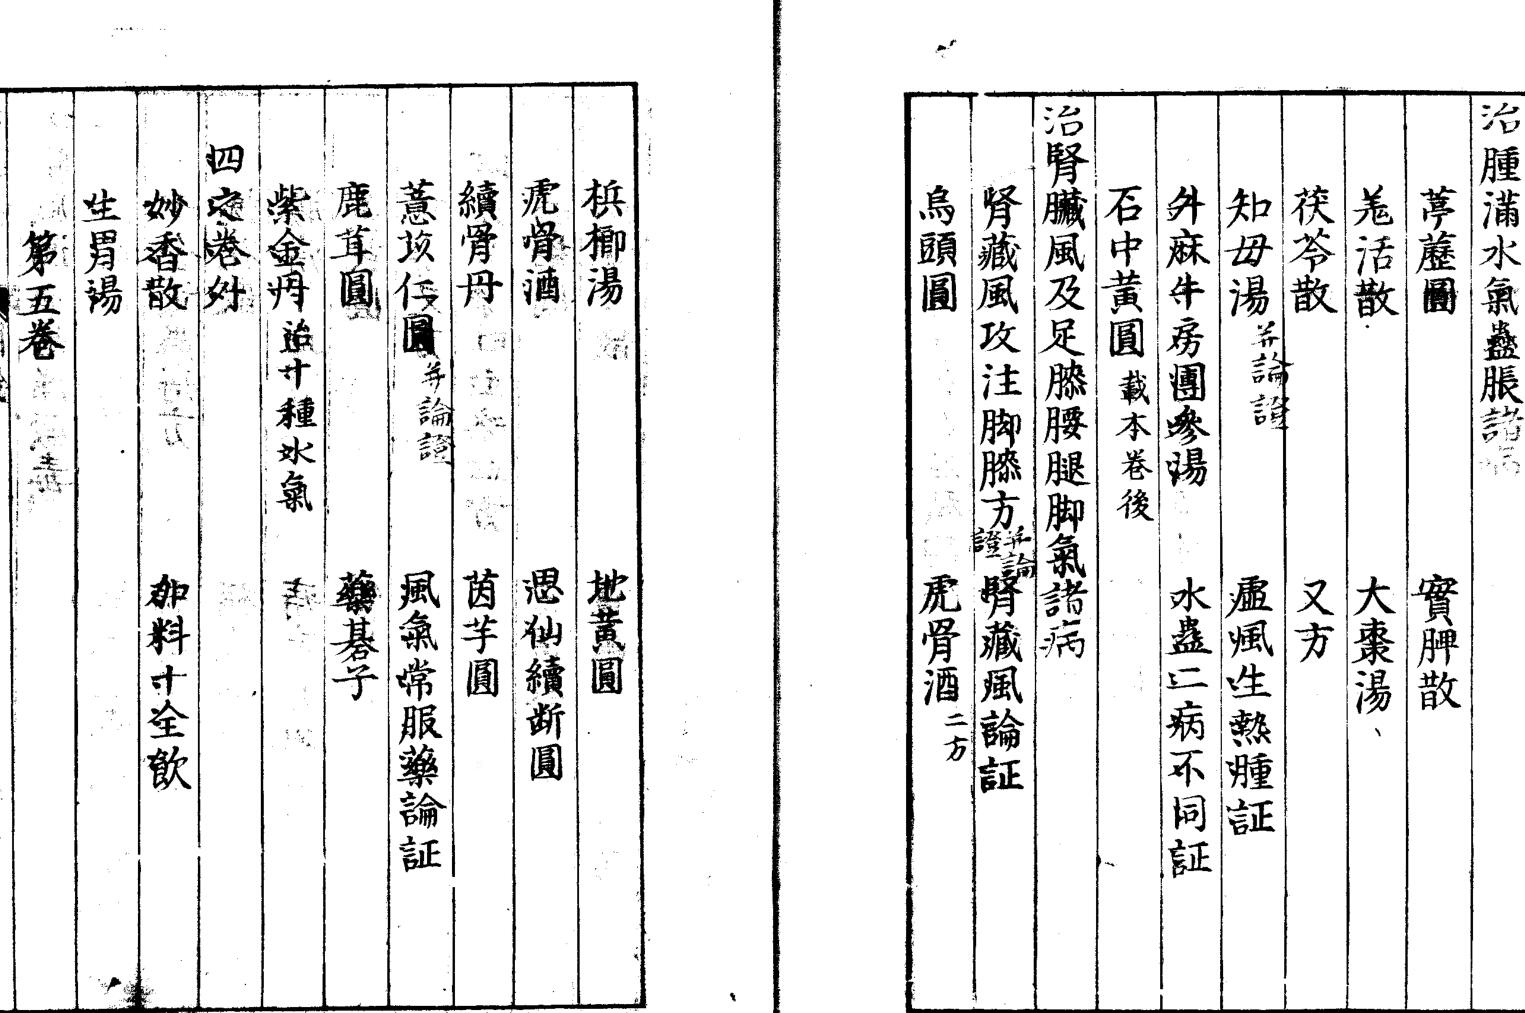 治腫滿水氣蠱脹諸病
葶藶圓 實脾散
羗活散 大棗湯
茯苓散 又方
知母湯 并論證 虛風生熱腫証
升麻牛房團參湯 水蠱二病不同証
石中黃圓 載本卷後
治腎臟風及足膝腰腿脚氣諸病
腎藏風攻注脚膝方 并論證 腎藏風論証
烏頭圓 虎骨酒 二方
梹榔湯 地黃圓
虎骨酒 思仙續断圓
續骨丹 茵芋圓
薏苡仁圓 并論證 風氣常服藥論証
鹿茸圓 藥碁子
紫金丹 治十種水氣
四之卷外
妙香散 加料十全飲
生胃湯
第五卷